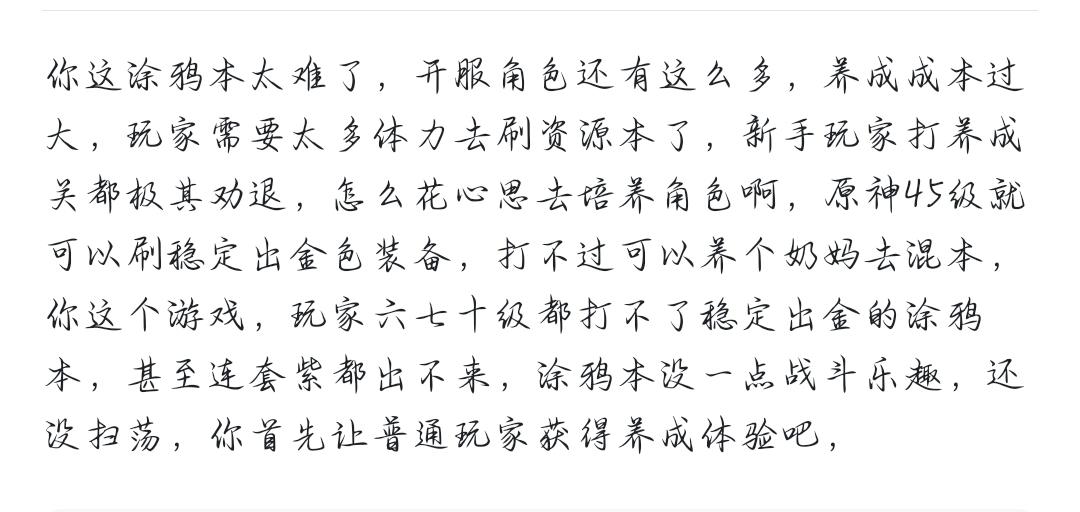 你这涂鸦本太难了，开服角色还有这么多，养成成本过
大，玩家需要太多体力去刷资源本了，新手玩家打养成
关都极其劝退，怎么花心思去培养角色啊，原神45级就
可以刷稳定出金色装备，打不过可以养个奶妈去混本，
你这个游戏，玩家六七十级都打不了稳定出金的涂鸦
本，甚至连套紫都出不来，涂鸦本没一点战斗乐趣，还
没扫荡，你首先让普通玩家获得养成体验吧，